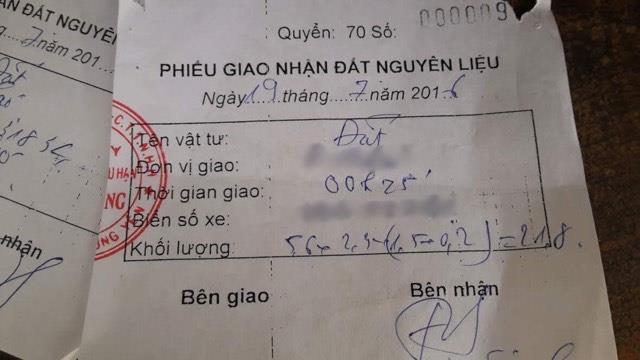 ẬN ĐẤT NGUYÊN
7 năm 201
Đất
nhận
Quyển: 70 Số: 000009
PHIẾU GIAO NHẬN ĐẤT NGUYÊN LIỆU
Ngày 19 tháng 7 năm 2016
Tên vật tư: Đất
Đơn vị giao:
Thời gian giao: 00h25'
Biển số xe:
Khối lượng 5,6 x 2,3 x (1,5 + 0,2) = 21,8.
Bên giao Bên nhận